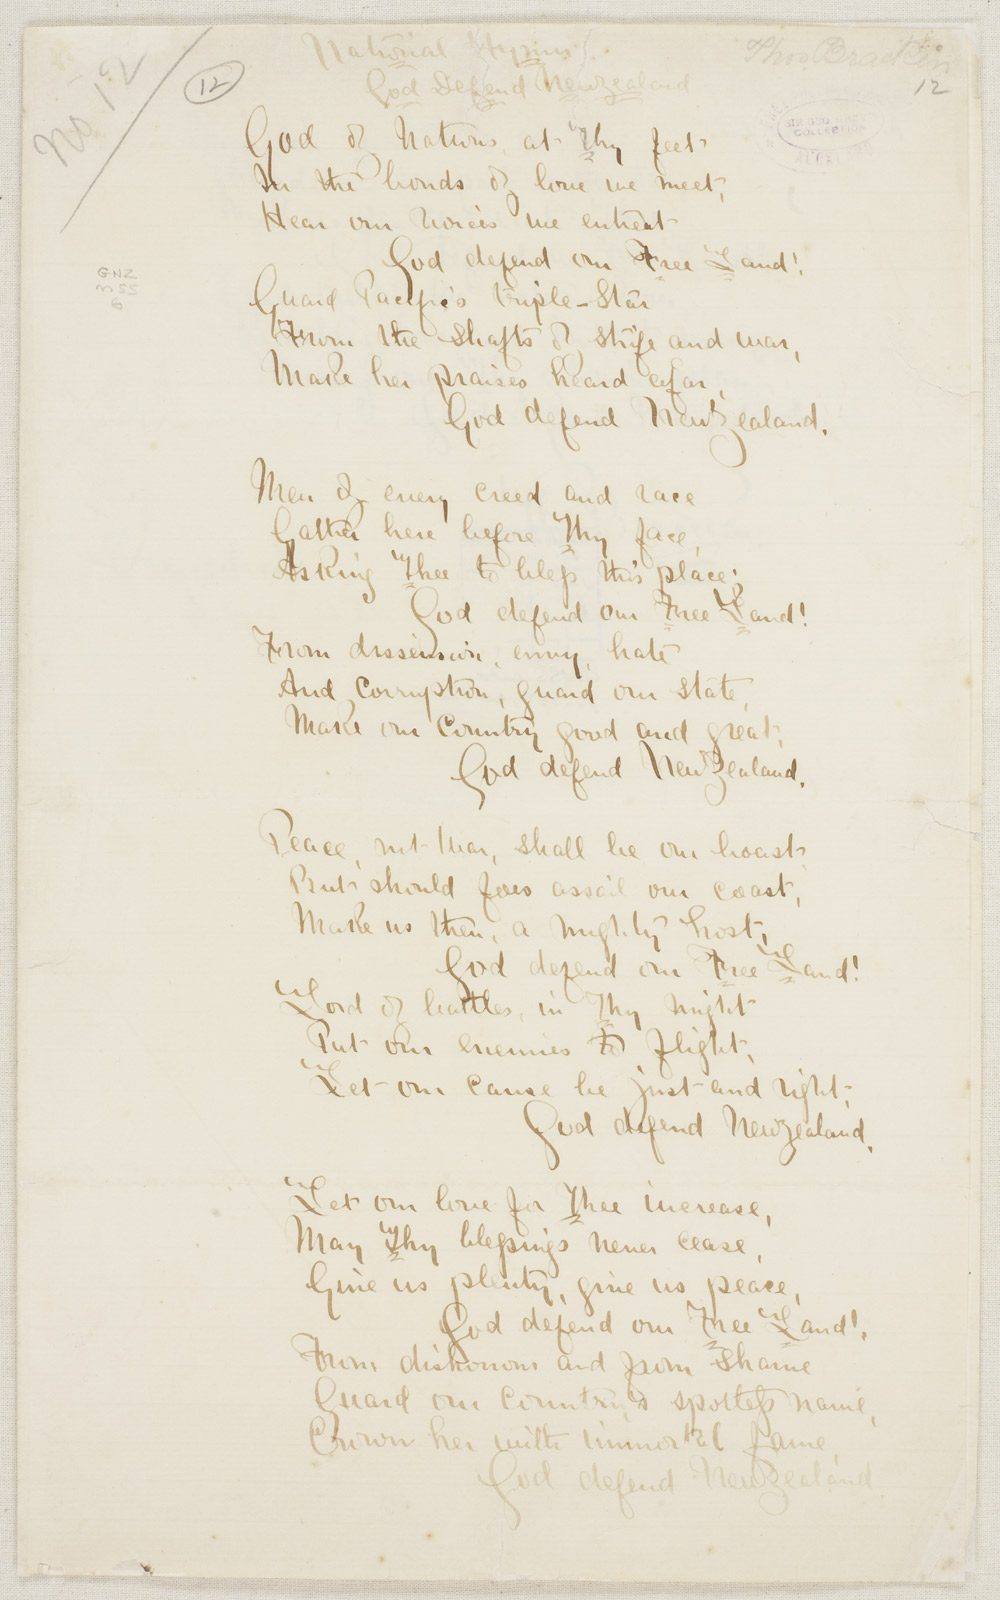 No 12
12
National Hymn
God Defend New Zealand
Thos Bracken
12
SIR GEO GREY
COLLECTION
AUCKLAND
GNZ
MSS
6
God of Nations, at Thy feet
In the bonds of love we meet,
Hear our voices we entreat
God defend our Free Land!
Guard Pacific's triple-Star
From the shafts of strife and war,
Make her praises heard afar,
God defend New Zealand.
Men of every creed and race
Gather here before Thy face,
Asking Thee to bless this place;
God defend our Free Land!
From dissension, envy, hate
And corruption, guard our State,
Make our Country good and great,
God defend New Zealand.
Peace, not War, shall be our boast,
But should foes assail our coast,
Make us then, a mighty host,
God defend our Free Land!
Lord of battles, in Thy might
Put our enemies to flight,
Let our cause be just and right,
God defend New Zealand.
Let our love for Thee increase,
May Thy blessings never cease,
Give us plenty, give us peace,
God defend our Free Land!
From dishonour and from Shame
Guard our Country's spotless name,
Crown her with immortal fame,
God defend New Zealand